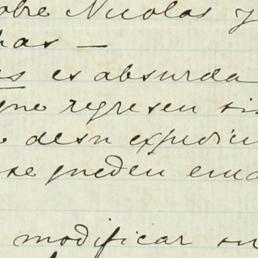 obre Nicolas y
has —
es es absurda
que regresen sin
desu expedici
se pueden env
modificar su